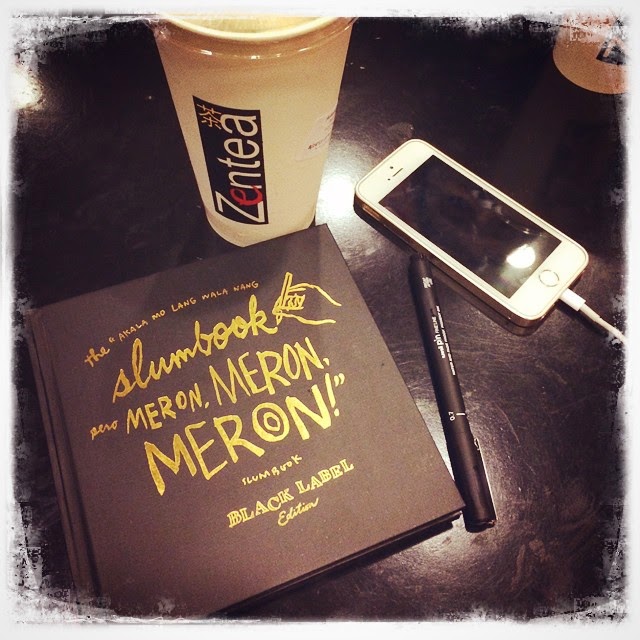 Zentea
the "AKALA MO LANG WALA NANG
slumbook
pero MERON, MERON,
MERON!"
SLUMBOOK
BLACK LABEL
Edition
uni pin FINE LINE
0.7